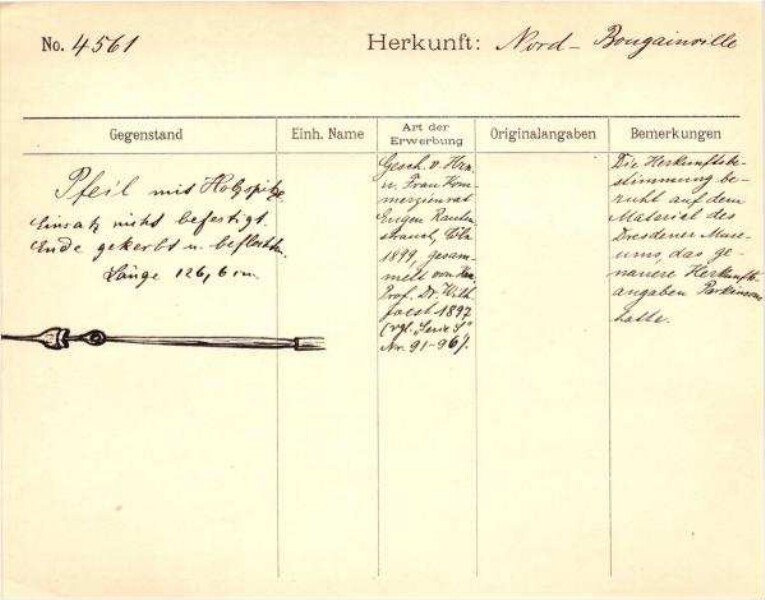 No. 4561
Herkunft: Nord- Bougainville
Gegenstand
Einh. Name
Art der Erwerbung
Originalangaben
Bemerkungen
Pfeil mit Holzspitze.
Einsatz nicht befestigt.
Ende gekerbt u. beflochten.
Länge 126,6 cm.
Gesch. v. Hrn.
u. Frau Kom-
merzienrat
Eugen Rauten-
strauch, Cöln
1899, gesam-
melt von
Prof. Dr. Wilh.
Joest 1897
(vgl. Serie S"
Nr. 91-96).
Die Herkunftsbe-
stimmung be-
ruht auf dem
Material des
Dresdener Muse-
ums, das ge-
nauere Herkunfts-
angaben Parkinsons
hatte.